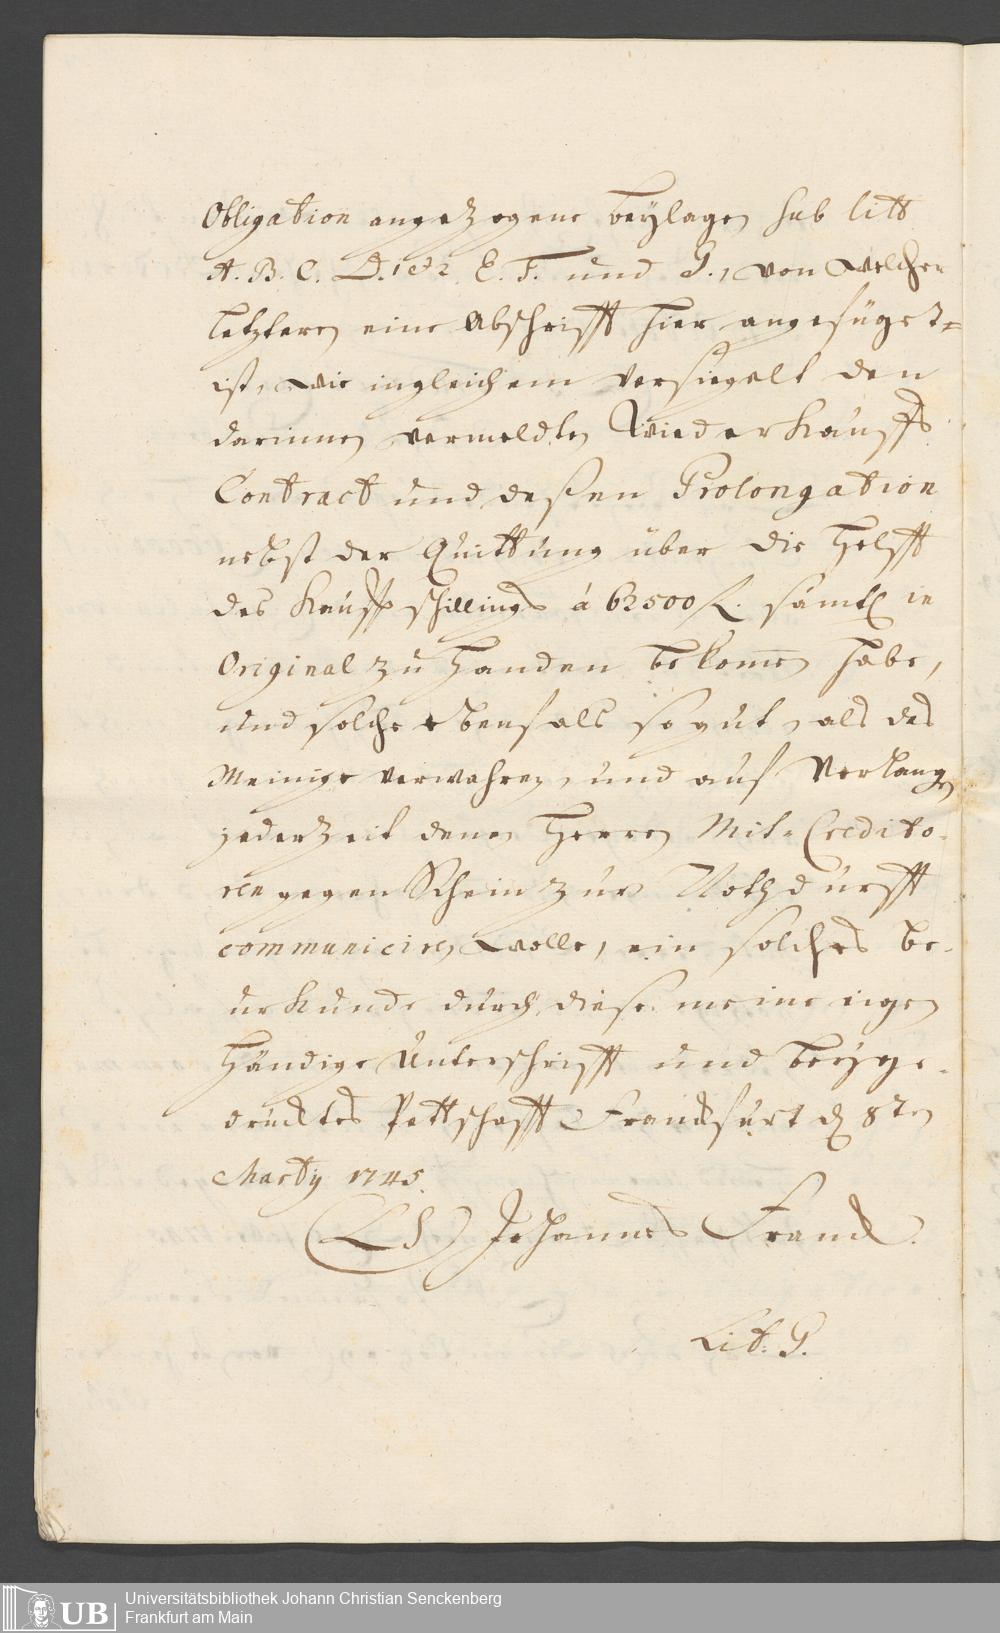 Obligation angezogene beylagen sub litt
A. B. C. D. 1 et 2. E. F. und G., von welcher
letzteren eine Abschrifft hier angefüget=
ist, wie ingleichem versiegelt den
darinnen vermeldten Wiederkauffs
Contract und deßen Prolongation
nebst der Quittung über die Helfft
des Kauffschillings á 62500 fl. sämtl in
Original zu Handen bekomen habe,
und solche ebenfals so gut, als das
Meinige verwahren, und auf Verlangen
jederzeit denen Herren Mit=Credito-
ren gegen Schein zur Nothdurfft
communiciren wolle, ein solches be-
urkunde durch diese meine eigen
händige Unterschrifft und beyge-
drucktes Pettschafft Franckfurt d 8ten
Marty 1745.
(LS) Johannes Franck.
Lit: G.
UB Universitätsbibliothek Johann Christian Senckenberg
Frankfurt am Main